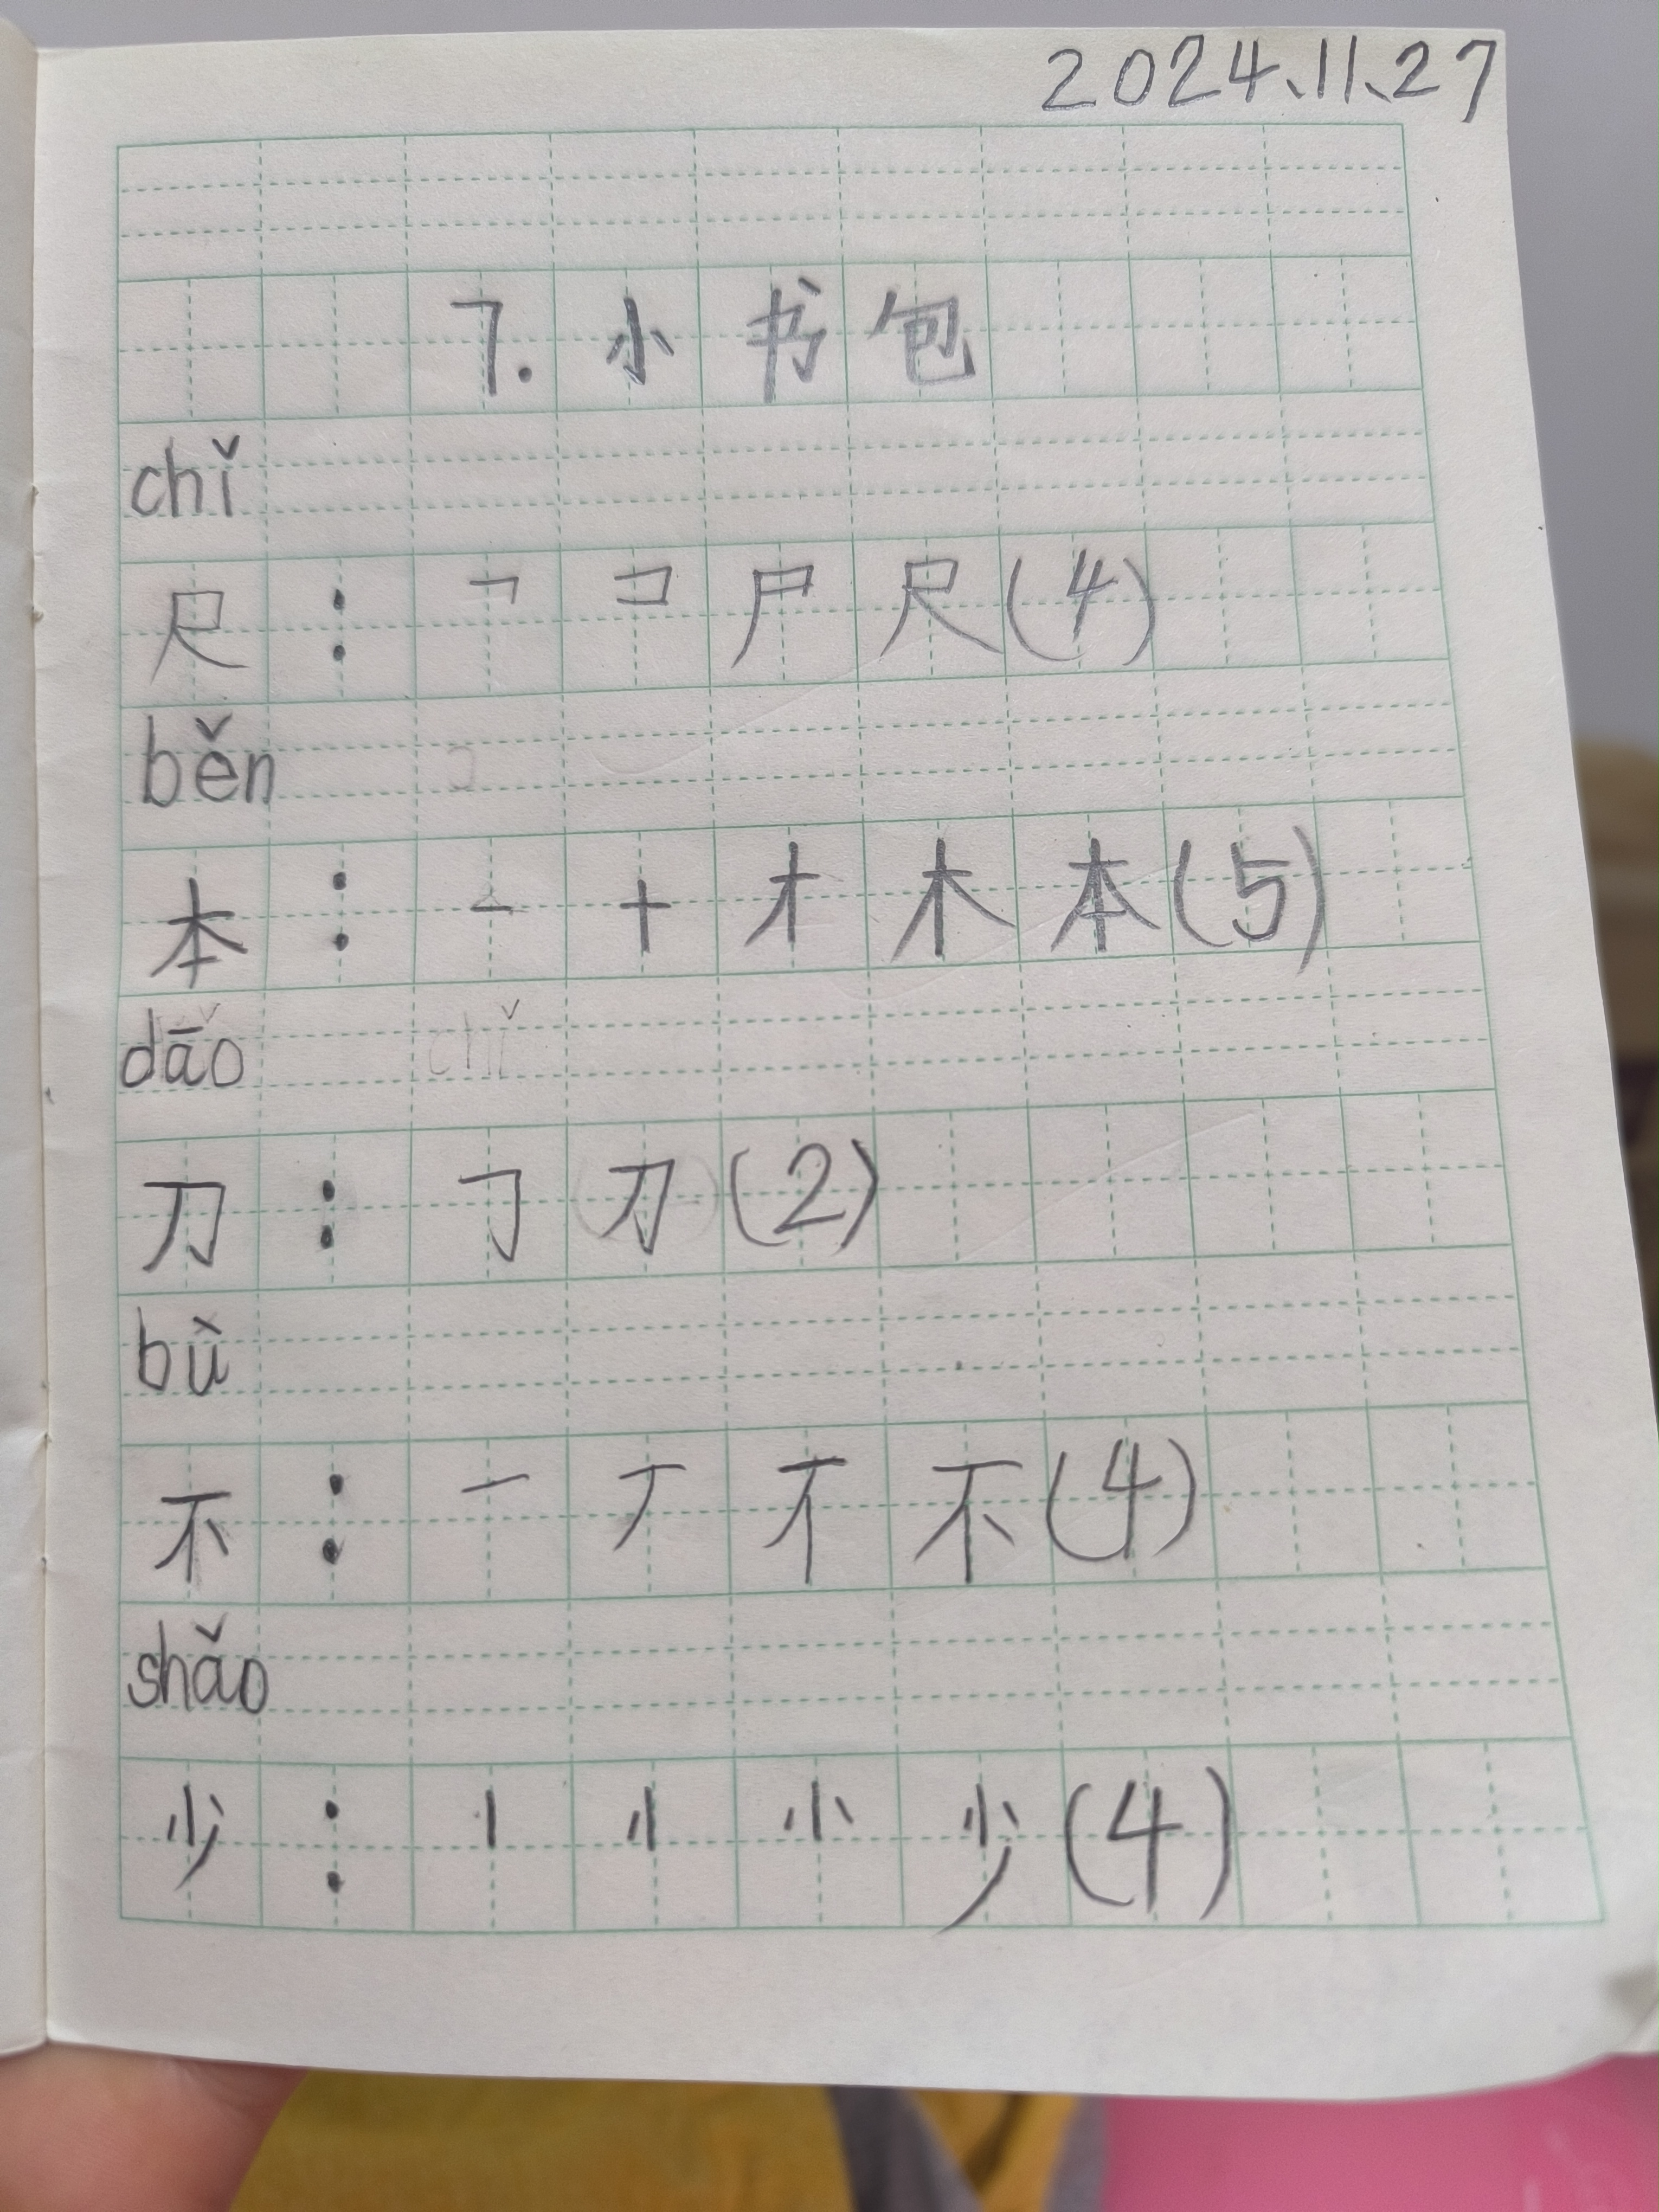 2024.11.27
7.小书包
chǐ
尺：㇕ コ 尸 尺(4)
běn
本：一 十 才 木 本(5)
dāo chǐ
刀：㇆ 刀(2)
bù
不：一 丆 不 不(4)
shǎo
少：丨 小 少(4)